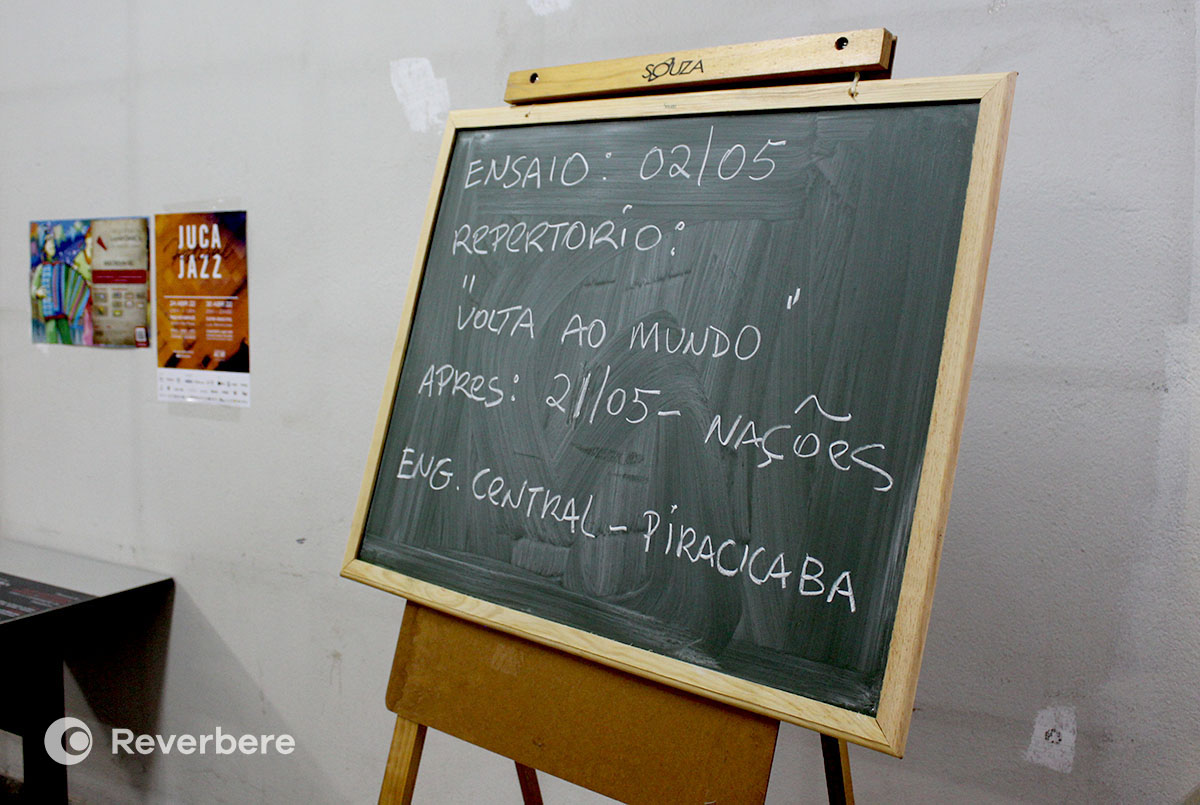 SOUZA
ENSAIO: 02/05
REPERTORIO:
"VOLTA AO MUNDO"
APRES: 21/05- NAÇÕES
ENG. CENTRAL - PIRACICABA
JUCA
JAZZ
Reverbere